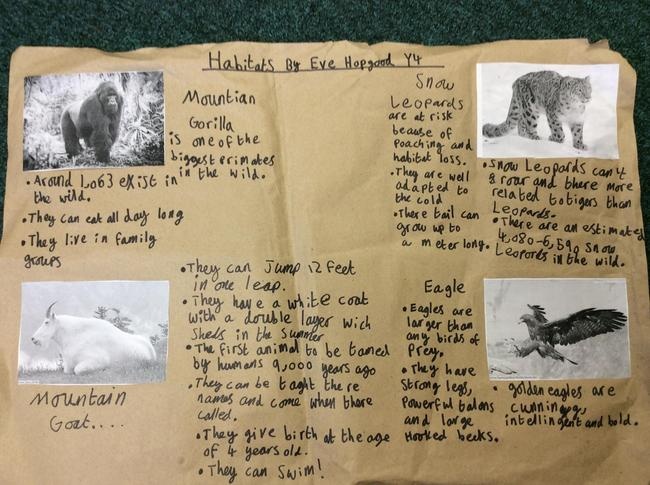 Habitats By Eve Hopgood Y4
Mountian
Gorilla
is one of the
biggest primates
in the wild.
• Around 1,063 exist in
the wild.
• They can eat all day long
• They live in family
groups
Snow
Leopards
are at risk
because of
poaching and
habitat loss.
• They are well
adapted to
the cold
• There tail can
grow up to
a meter long.
• Snow Leopards can't
roar and there more
related to tigers than
Leopards.
• There are an estimated
4,080-6,590 Snow
Leopords in the wild.
Mountain
Goat....
• They can Jump 12 feet
in one leap.
• They have a white coat
with a double layer wich
sheds in the Summer
• The first animal to be tamed
by humans 9,000 years ago
• They can be taght there
names and come when there
called.
• They give birth at the age
of 4 years old.
• They can Swim!
Eagle
• Eagles are
larger than
any birds of
Prey.
• They have
Strong legs,
Powerful talons
and large
Hooked beeks.
• golden eagles are
cunning,
intellingent and bold.